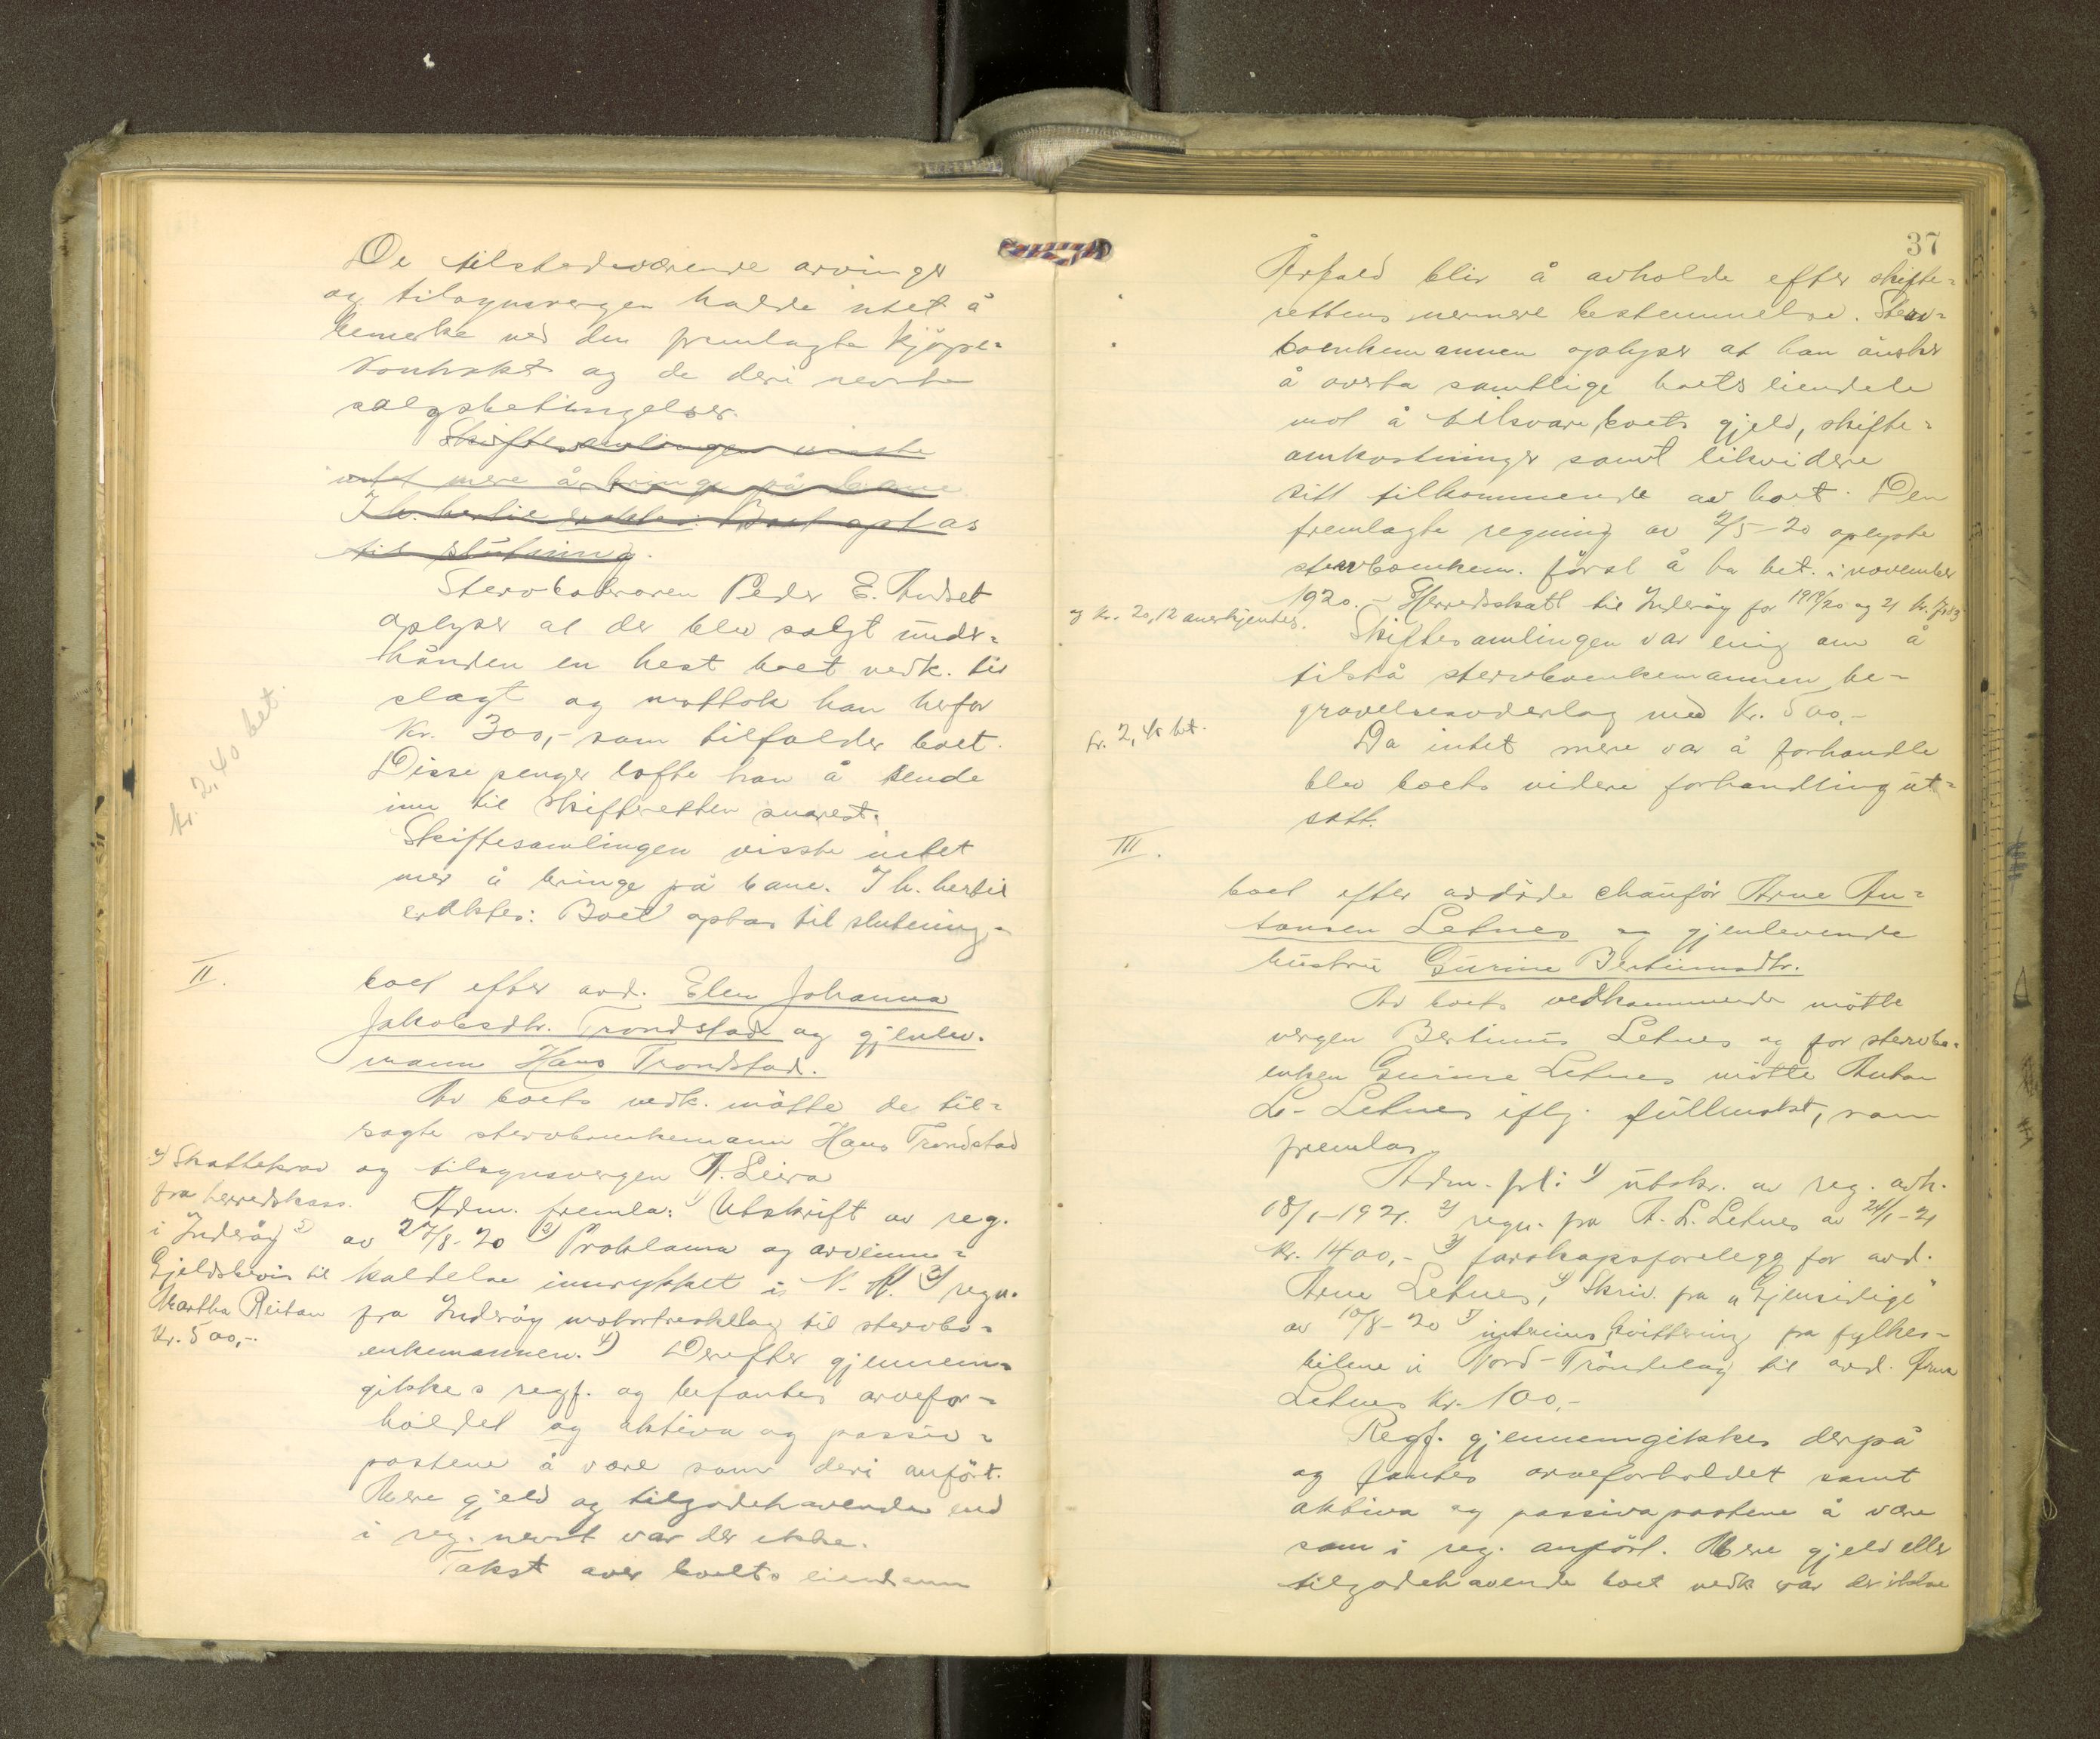 De tilstedeværende arvinger
og tilsynsvergen hadde intet å
bemerke ved den fremlagte kjöpe-
kontrakt og de deri nevnte
salgsbetingelser.
Skiftesamlingen visste
intet mere å bringe på bane
Th. hertil eraktes: Boet optas
til slutning.
Stervboværgen Peder E. Audset
oplyser at der blev solgt under-
hånden en hest boet vedk. til
slagt og mottok han herfor
kr. 300,- som tilfalder boet.
Disse penger lofte han å sende
inn til skifteretten snarest.
Skiftesamlingen visste intet
mer å bringe på bane. Th. hertil
eraktes: Boet optas til slutning.-
kr. 2,40 bet.
II.
boet efter avd. Elen Johanna
Jakobsdtr. Trondstad og gjenlev.
mann Hans Trondstad.
Av boets vedk. mötte de til-
sagte stervboenkemann Hans Trondstad
og tilsynsvergen A. Leira
Adm. fremla: 1) Utskrift av reg.
av 27/8-20 2) Proklama og arveinn-
kaldelse innrykket i N. A. 3) regn.
fra Inderöy motortreskelag til stervbo-
enkemannen. 4) Derefter gjennem-
gikkes regf. og befantes arvefor-
holdet og aktiva og passiv-
postene å være som deri anfört.
Mere gjeld og tilgodehavende end
i reg. nevnt var der ikke.
Takst over boets eiendom
4) Skattekrav
fra herredskass.
i Inderöy 5)
Gjeldsbevis til
Martha Reitan
kr. 500,-.
37
Årfald blir å avholde efter skifte-
rettens nermere bestemmelse. Sterv-
boenkemannen oplyser at han önsker
å overta samtlige boets eiendele
mot å tilsvare boets gjeld, skifte-
omkostninger samt likvidere
sitt tilkommende av boet. Den
fremlagte regning av 2/5-20 oplyste
stervboenkem. först å ha bet. i november
1920. - Herredskatt til Inderöy for 1919/20 og 21
og kr. 20,12 anerkjentes.
Skiftesamlingen var enig om å
tilstå stervboenkemannen be-
gravelsesvederlag med kr. 500,-
kr. 2,40 bet.
Da intet mere var å forhandle
blev boets videre forhandling ut-
satt.
III.
boet efter avdöde chauför Arne An-
tonsen Letnes og gjenlevende
hustru Gurine Bertinusdtr.
Av boets vedkommende mötte
vergen Bertinus Letnes og for stervbo-
enken Gurine Letnes mötte Anton
L. Letnes iflg. fullmakt, som
fremlas.
Adm. frl: 1) utskr. av reg. avh.
18/1-1921. 2) regn. fra A. L. Letnes av 24/1-21
kr. 1400,- 3) farskapsforelegg for avd.
Arne Letnes, 4) Skriv. fra „Gjensidige"
av 10/8-20 5) interims kvittering fra fylkes-
bilene i Nord-Tröndelag til avd. Arne
Letnes kr. 100,-
Regf. gjennemgikkes derpå
og fantes arveforholdet samt
aktiva og passivapostene å være
som i reg. anfört. Mere gjeld eller
tilgodehavende boet vedk var der ikke